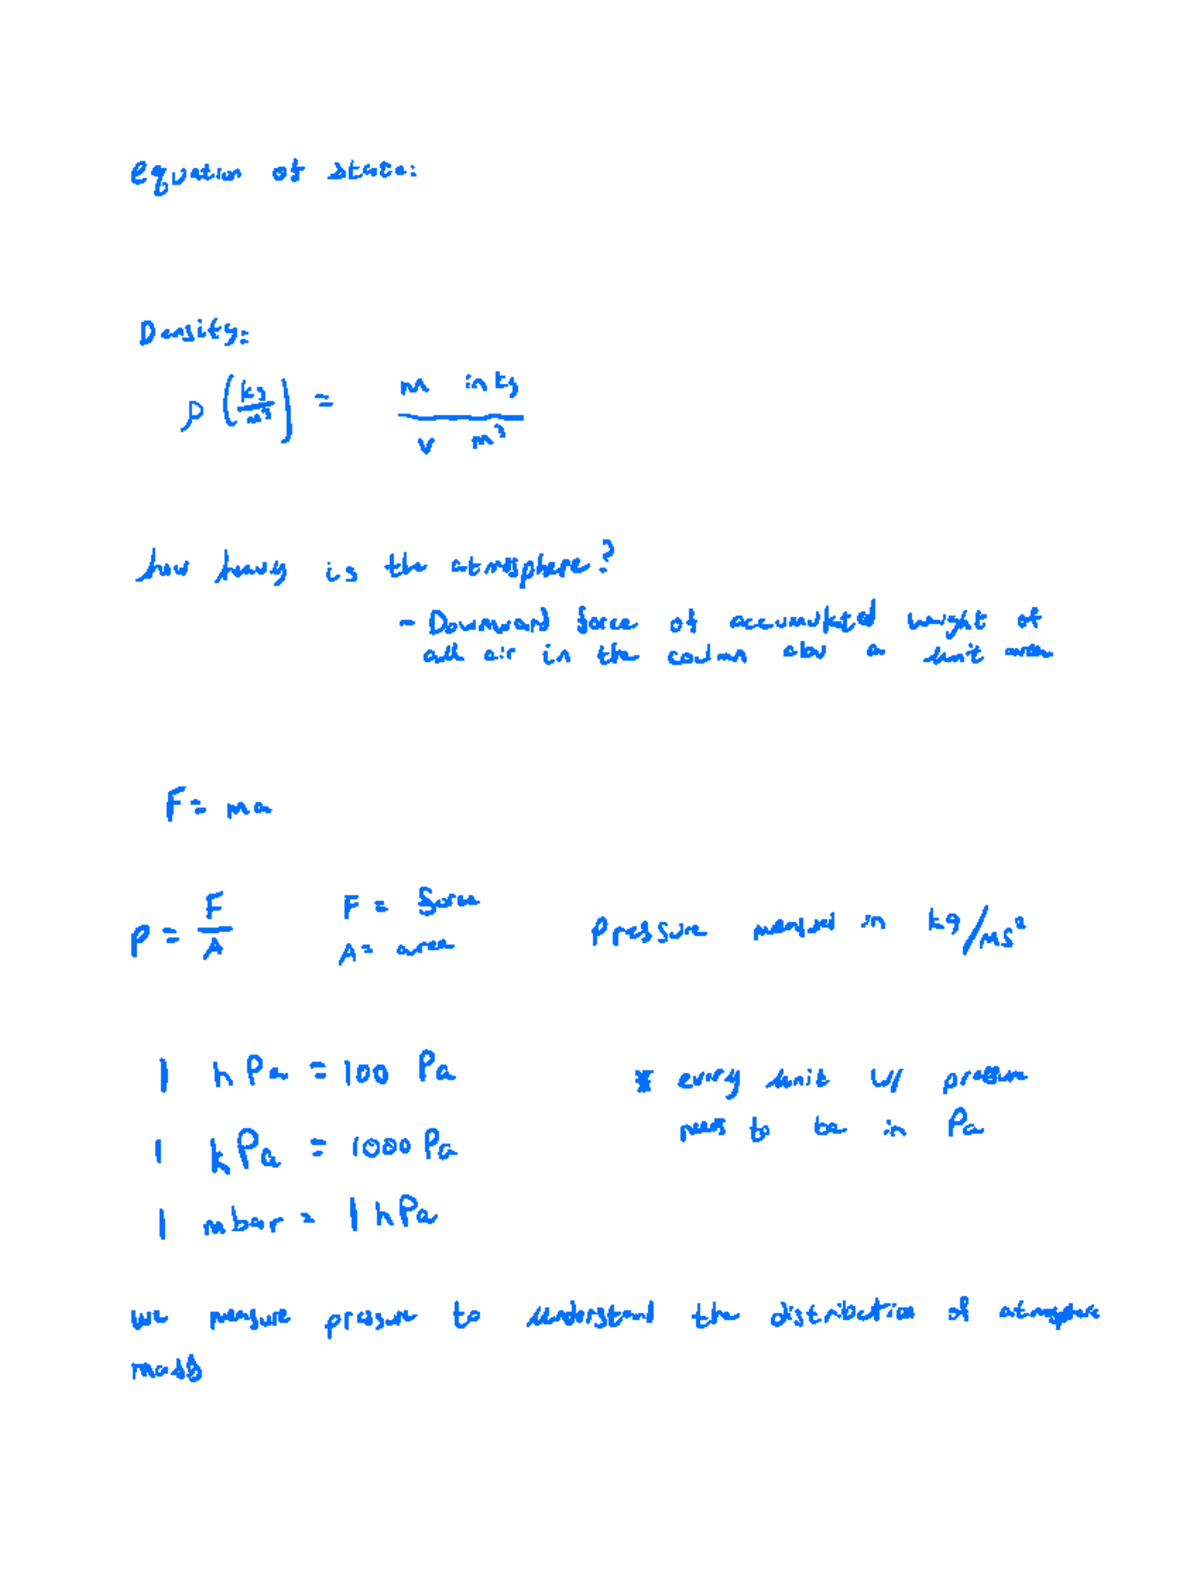 equation of state:
Density:
ρ (kg/m³) = m in kg / v m³
how heavy is the atmosphere?
- Downward force of accumulated weight of
all air in the coulmn abov a unit area
F = ma
P = F/A F = force Pressure measured in kg/ms²
A = area
1 hPa = 100 Pa * every unit w/ pressure
needs to be in Pa
1 kPa = 1000 Pa
1 mbar = 1 hPa
we measure pressure to understand the distribution of atmosphere
mass